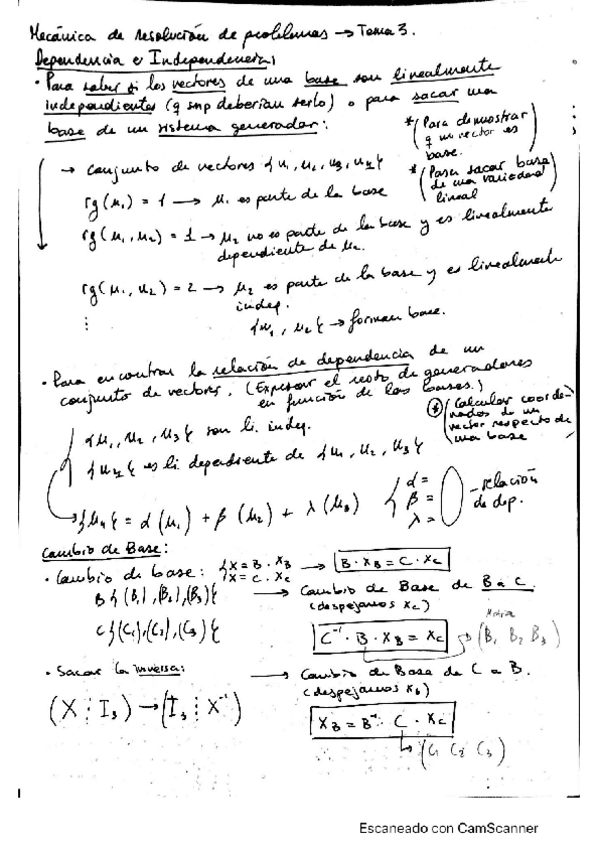 Mecánica de resolución de problemas → Tema 3.
Dependencia e Independencia:
· Para saber si los vectores de una base son linealmente
independientes (q smp deberían serlo) o para sacar una
base de un sistema generador:
* (Para demostrar
q un vector es
base.)
* (Para sacar base
de una variedad
lineal)
→ conjunto de vectores {u1, u2, u3, u4}
rg(u1) = 1 → u1 es parte de la base
rg(u1, u2) = 1 → u2 no es parte de la base y es linealmente
dependiente de u2.
rg(u1, u2) = 2 → u2 es parte de la base y es linealmente
indep.
⋮
{u1, u2} → forman base.
· Para encontrar la relación de dependencia de un
conjunto de vectores. (Expresar el resto de generadores
en función de las bases.)
* (Calcular coorde-
nadas de un
vector respecto de
una base
{u1, u2, u3} son li. indep.
{u4} es li dependiente de {u1, u2, u3}
→ {u4} = α(u1) + β(u2) + λ(u3)
{ α =
β =
λ =
- relación
de dep.
Cambio de Base:
· Cambio de base: { X = B · XB
X = C · XC
→ B · XB = C · XC
B {(B1), (B2), (B3)}
C {(C1), (C2), (C3)}
→ Cambio de Base de B a C.
(despejamos XC)
C⁻¹ · B · XB = XC
(B1 B2 B3)
· Sacar la inversa:
(X ⋮ I3) → (I3 ⋮ X⁻¹)
→ Cambio de Base de C a B.
(despejamos Xb)
XB = B⁻¹ · C · XC
(C1 C2 C3)
Escaneado con CamScanner